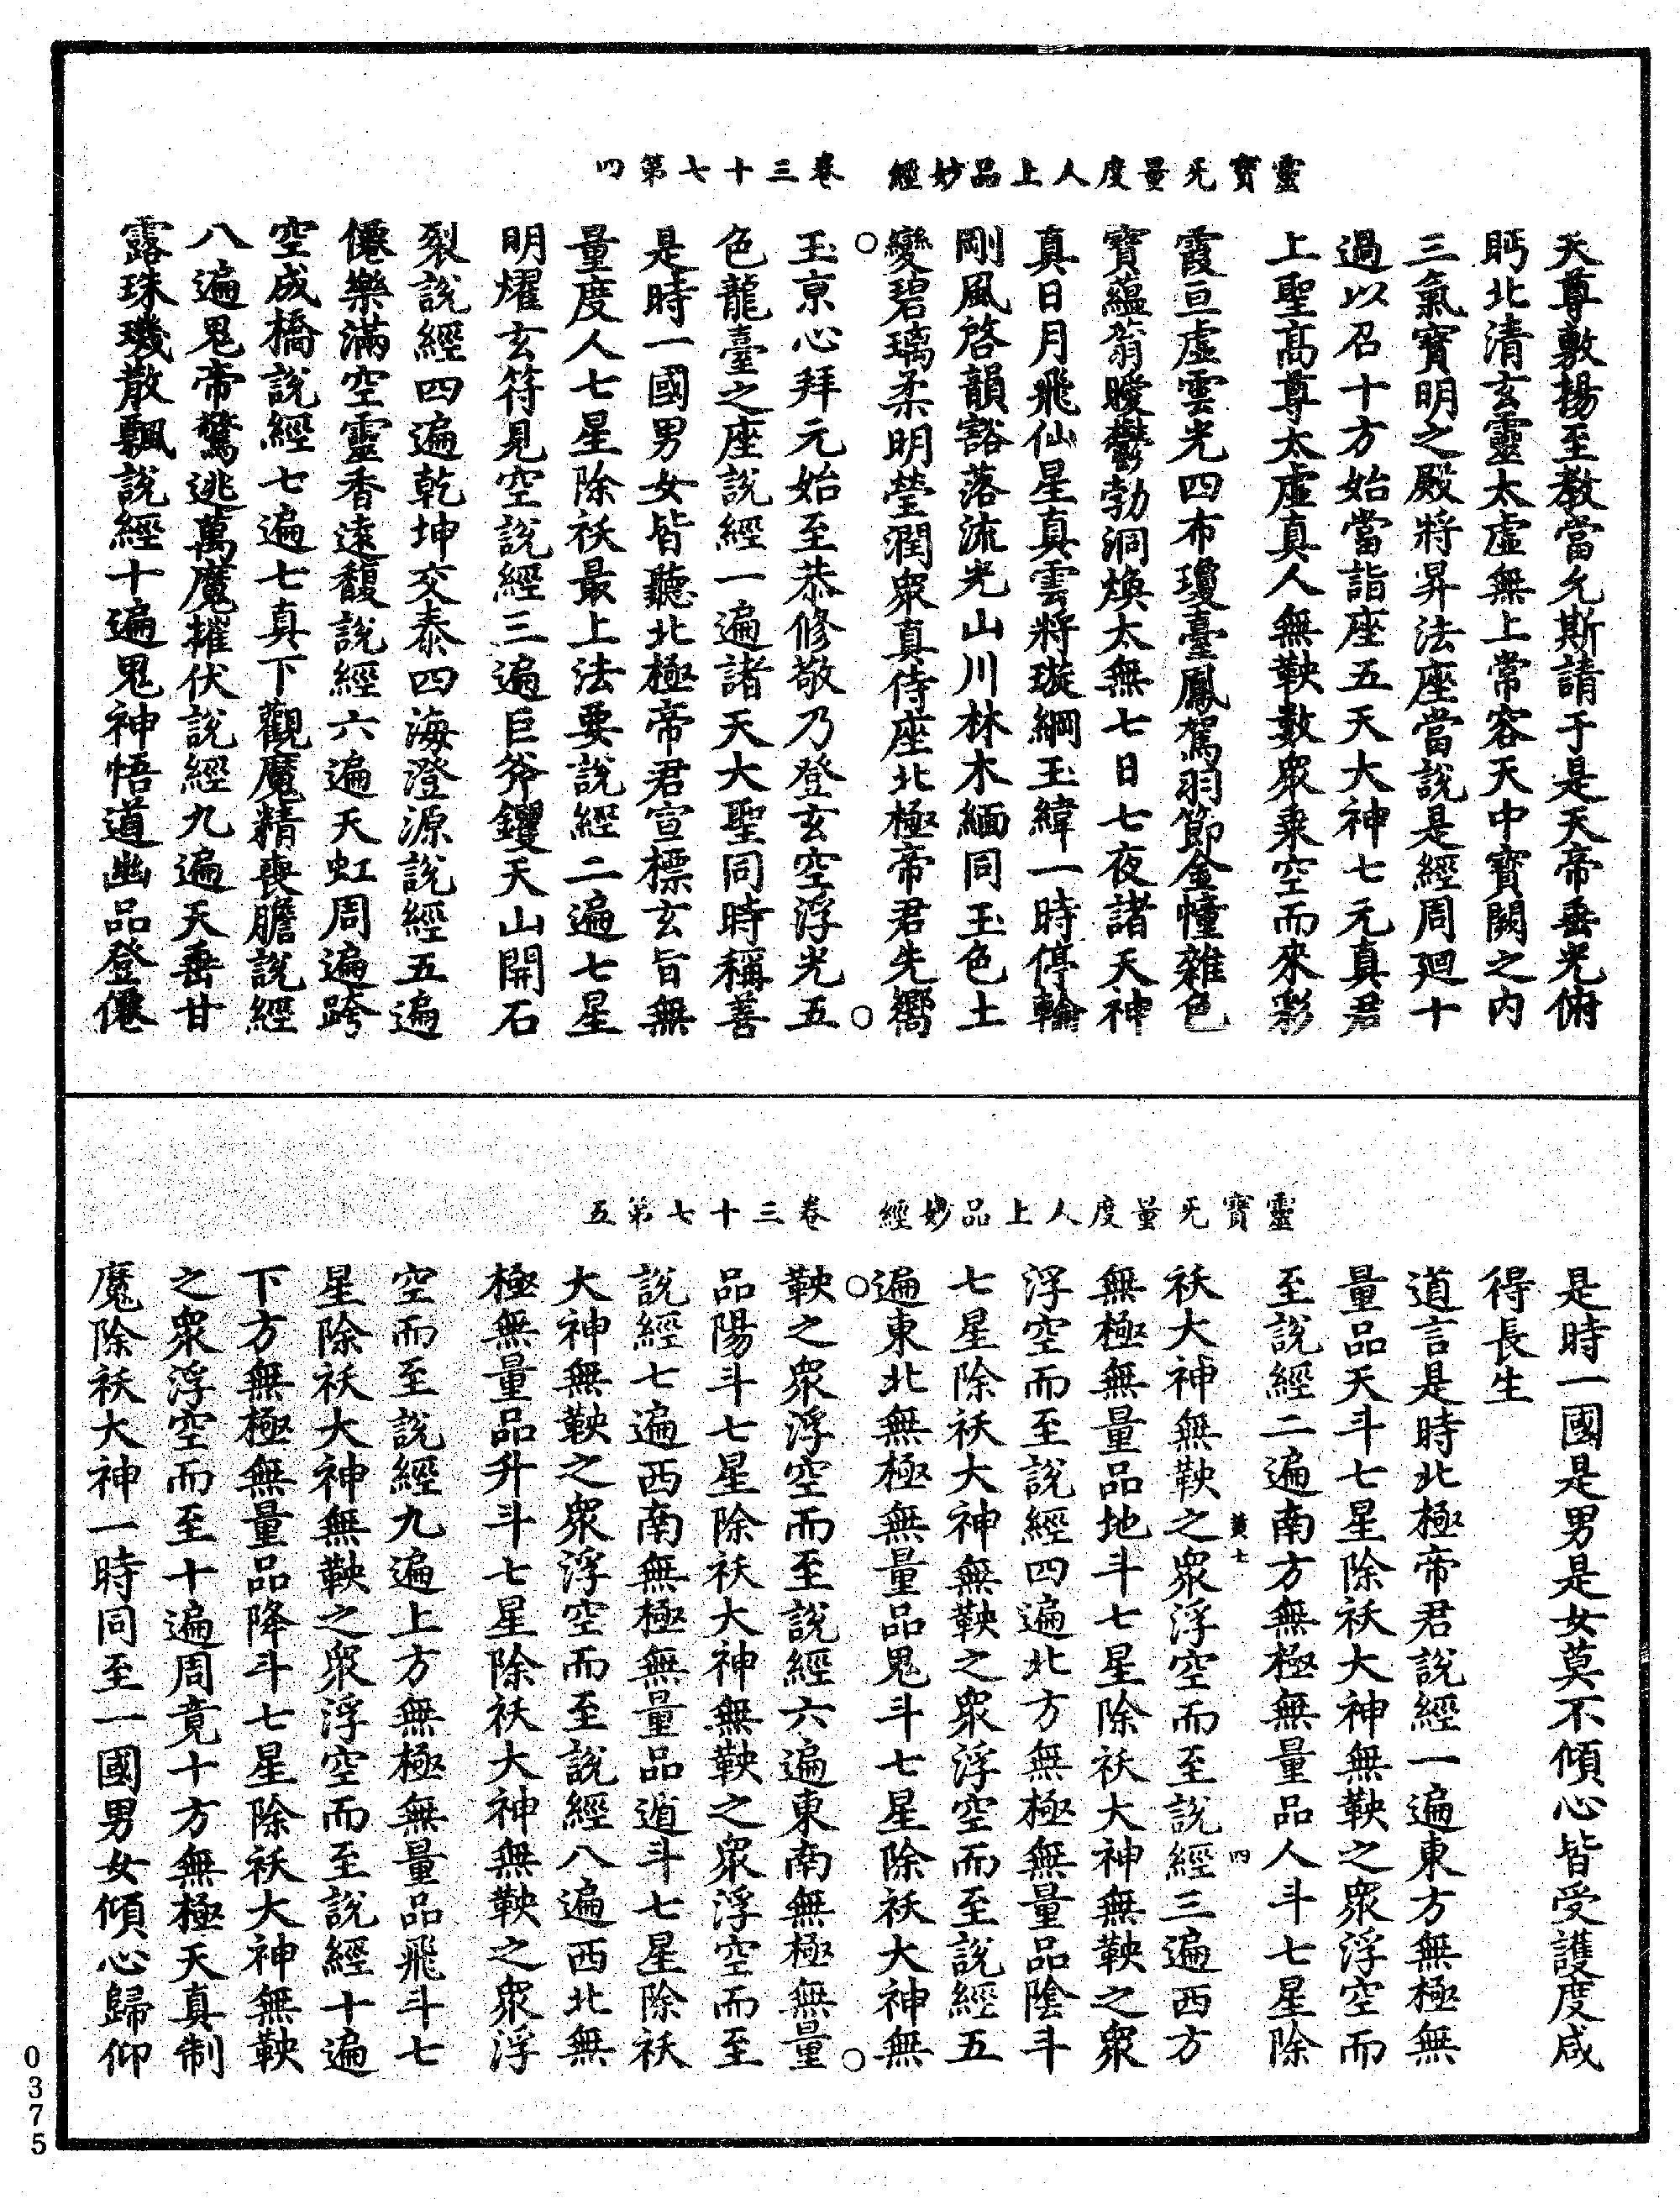 靈寶无量度人上品妙經　卷三十七第四
天尊敷揚至教當允斯請于是天帝垂光俯
眄北清玄靈太虛無上常容天中寶闕之内
三氣寶明之殿將昇法座當說是經周廻十
過以召十方始當詣座五天大神七元真君
上聖髙尊太虛真人無鞅數衆乗空而來彩
霞亘虛雲光四布瓊臺鳳駕羽節金幢雜色
寶蘊蓊曖鬱勃洞煥太無七日七夜諸天神
真日月飛仙星真雲將璇綱玉緯一時停輪
剛風啓韻豁落流光山川林木緬同玉色土
變碧璃柔明瑩潤衆真侍座北極帝君先嚮
玉京心拜元始至恭修敬乃登玄空浮光五
色龍臺之座說經一遍諸天大聖同時稱善
是時一國男女皆聽北極帝君宣標玄旨無
量度人七星除祅最上法要說經二遍七星
明燿玄符見空說經三遍巨斧钁天山開石
裂說經四遍乾坤交泰四海澄源說經五遍
僊樂滿空靈香遠馥說經六遍天虹周遍跨
空成橋說經七遍七真下觀魔精喪膽說經
八遍鬼帝驚逃萬魔摧伏說經九遍天垂甘
露珠璣散飄說經十遍鬼神悟道幽品登僊
靈寶无量度人上品妙經　卷三十七第五
是時一國是男是女莫不傾心皆受護度咸
得長生
道言是時北極帝君說經一遍東方無極無
量品天斗七星除祅大神無鞅之衆浮空而
至說經二遍南方無極無量品人斗七星除
黄七　四
祅大神無鞅之衆浮空而至說經三遍西方
無極無量品地斗七星除祅大神無鞅之衆
浮空而至說經四遍北方無極無量品陰斗
七星除祅大神無鞅之衆浮空而至說經五
遍東北無極無量品鬼斗七星除祅大神無
鞅之衆浮空而至說經六遍東南無極無量
品陽斗七星除祅大神無鞅之衆浮空而至
說經七遍西南無極無量品遁斗七星除祅
大神無鞅之衆浮空而至說經八遍西北無
極無量品升斗七星除祅大神無鞅之衆浮
空而至說經九遍上方無極無量品飛斗七
星除祅大神無鞅之衆浮空而至說經十遍
下方無極無量品降斗七星除祅大神無鞅
之衆浮空而至十遍周竟十方無極天真制
魔除祅大神一時同至一國男女傾心歸仰
0375